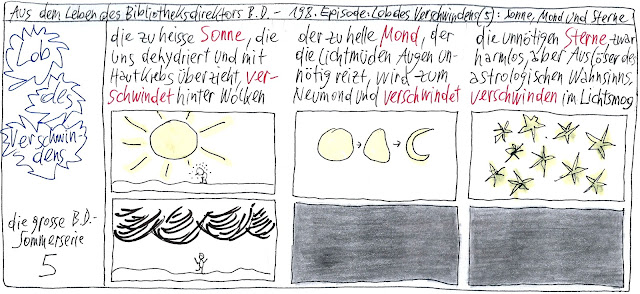 Aus dem Leben des Bibliotheksdirektors B.D. – 198. Episode: Lob des Verschwindens (5): Sonne, Mond und Sterne
Lob
des
Verschwin-
dens
die grosse B.D.-
Sommerserie
5
die zu heisse Sonne, die
uns dehydriert und mit
Hautkrebs überzieht, ver-
schwindet hinter Wolken
der zu helle Mond, der
die lichtmüden Augen un-
nötig reizt, wird zum
Neumond und verschwindet
die unnötigen Sterne, zwar
harmlos, aber Auslöser des
astrologischen Wahnsinns,
verschwinden im Lichtsmog